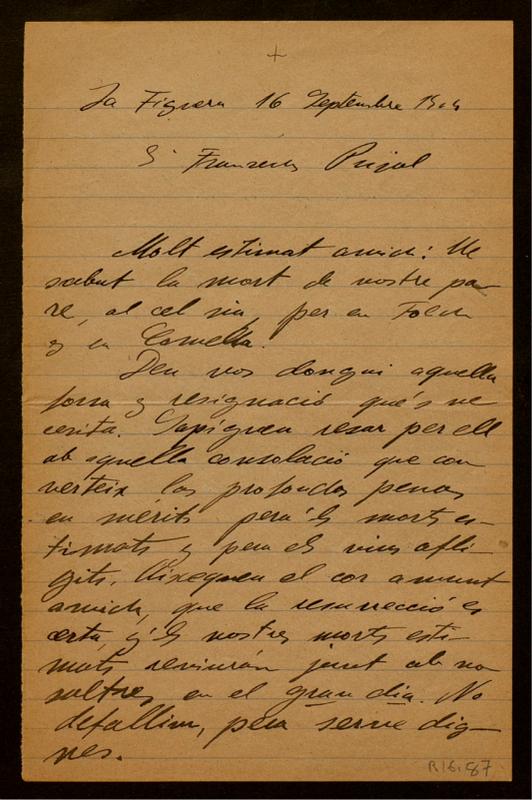 +
La Figuera 16 Septembre 1904
Sr Francesch Pujol
Molt estimat amich: He
sabut la mort de vostre pa-
re, al cel sia, per en Folch
y en Comella.
Deu vos dongui aquella
forsa y resignació que's ne
cesita. Sapigueu resar per ell
ab aquella consolació que con
verteix las profondas penas
en mèrits pera'ls morts es-
timats y pera els vius afli-
gits. Aixequeu el cor amunt
amich, que la resurrecció es
certa, y'ls nostres morts esti-
mats reviurán junt ab no
saltres en el gran dia. No
defallim, pera serne dig-
nes.
R/6,87